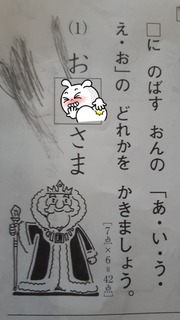 □に のばす おんの 「あ・い・う・
え・お」の どれかを かきましょう。
[7点×6=42点]
(1) お□さま